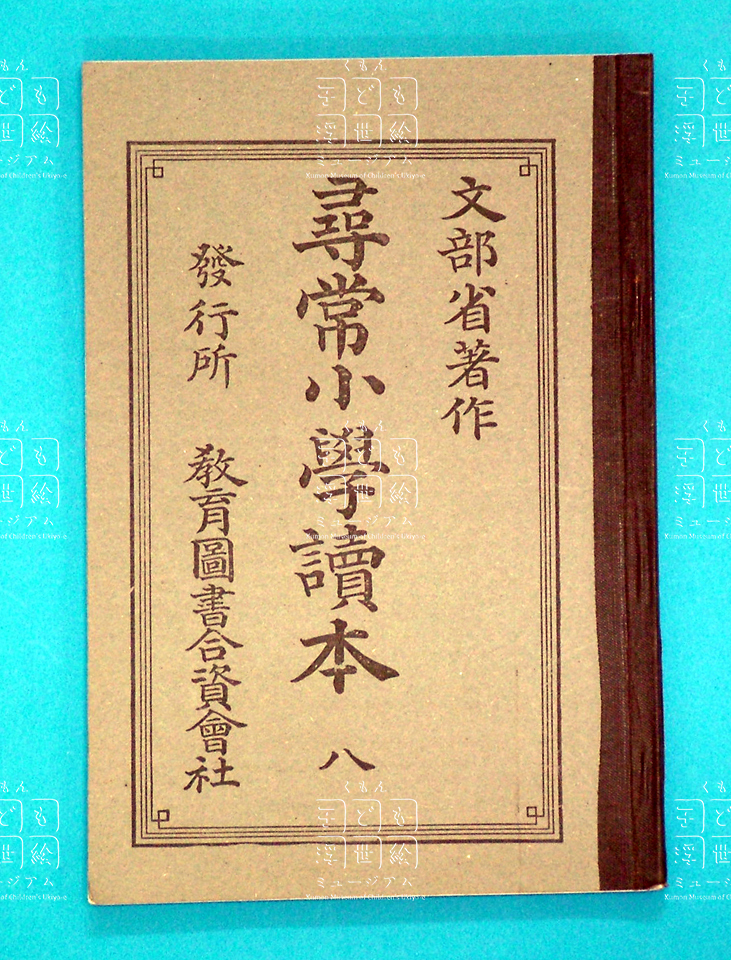 文部省著作
尋常小學讀本 八
發行所 教育圖書合資會社
くもん
子ども
浮世絵
ミュージアム
Kumon Museum of Children's Ukiyo-e